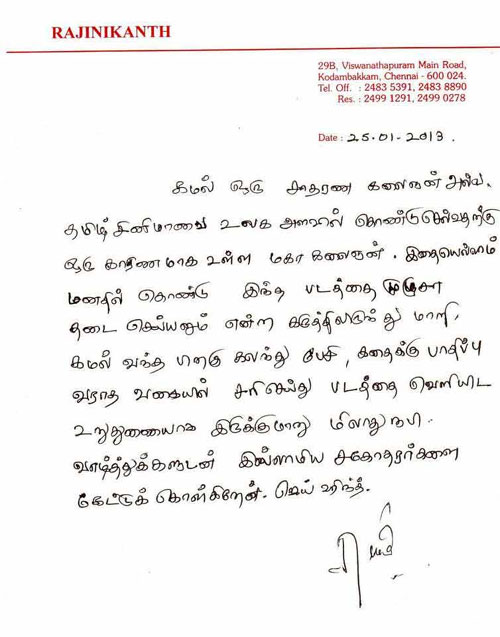 RAJINIKANTH
29B, Viswanathapuram Main Road,
Kodambakkam, Chennai - 600 024.
Tel. Off. : 2483 5391, 2483 8890
Res. : 2499 1291, 2499 0278
Date : 25-01-2013.
கமல் ஒரு சாதாரண கலைஞன் அல்ல.
தமிழ் சினிமாவை உலக அளவில் கொண்டுசெல்வதற்கு
ஒரு காரணமாக உள்ள மகா கலைஞன். இதையெல்லாம்
மனதில் கொண்டு இந்த படத்தை முழுசா
தடை செய்யணும் என்ற கருத்திலிருந்து மாறி,
கமல் வந்த பிறகு கலந்து பேசி, கதைக்கு பாதிப்பு
வராத வகையில் சரிசெய்து படத்தை வெளியிட
உறுதுணையாக இருக்குமாறு மிலாது நபி
வாழ்த்துக்களுடன் இஸ்லாமிய சகோதரர்களை
கேட்டுக் கொள்கிறேன். ஜெய் ஹிந்த்.